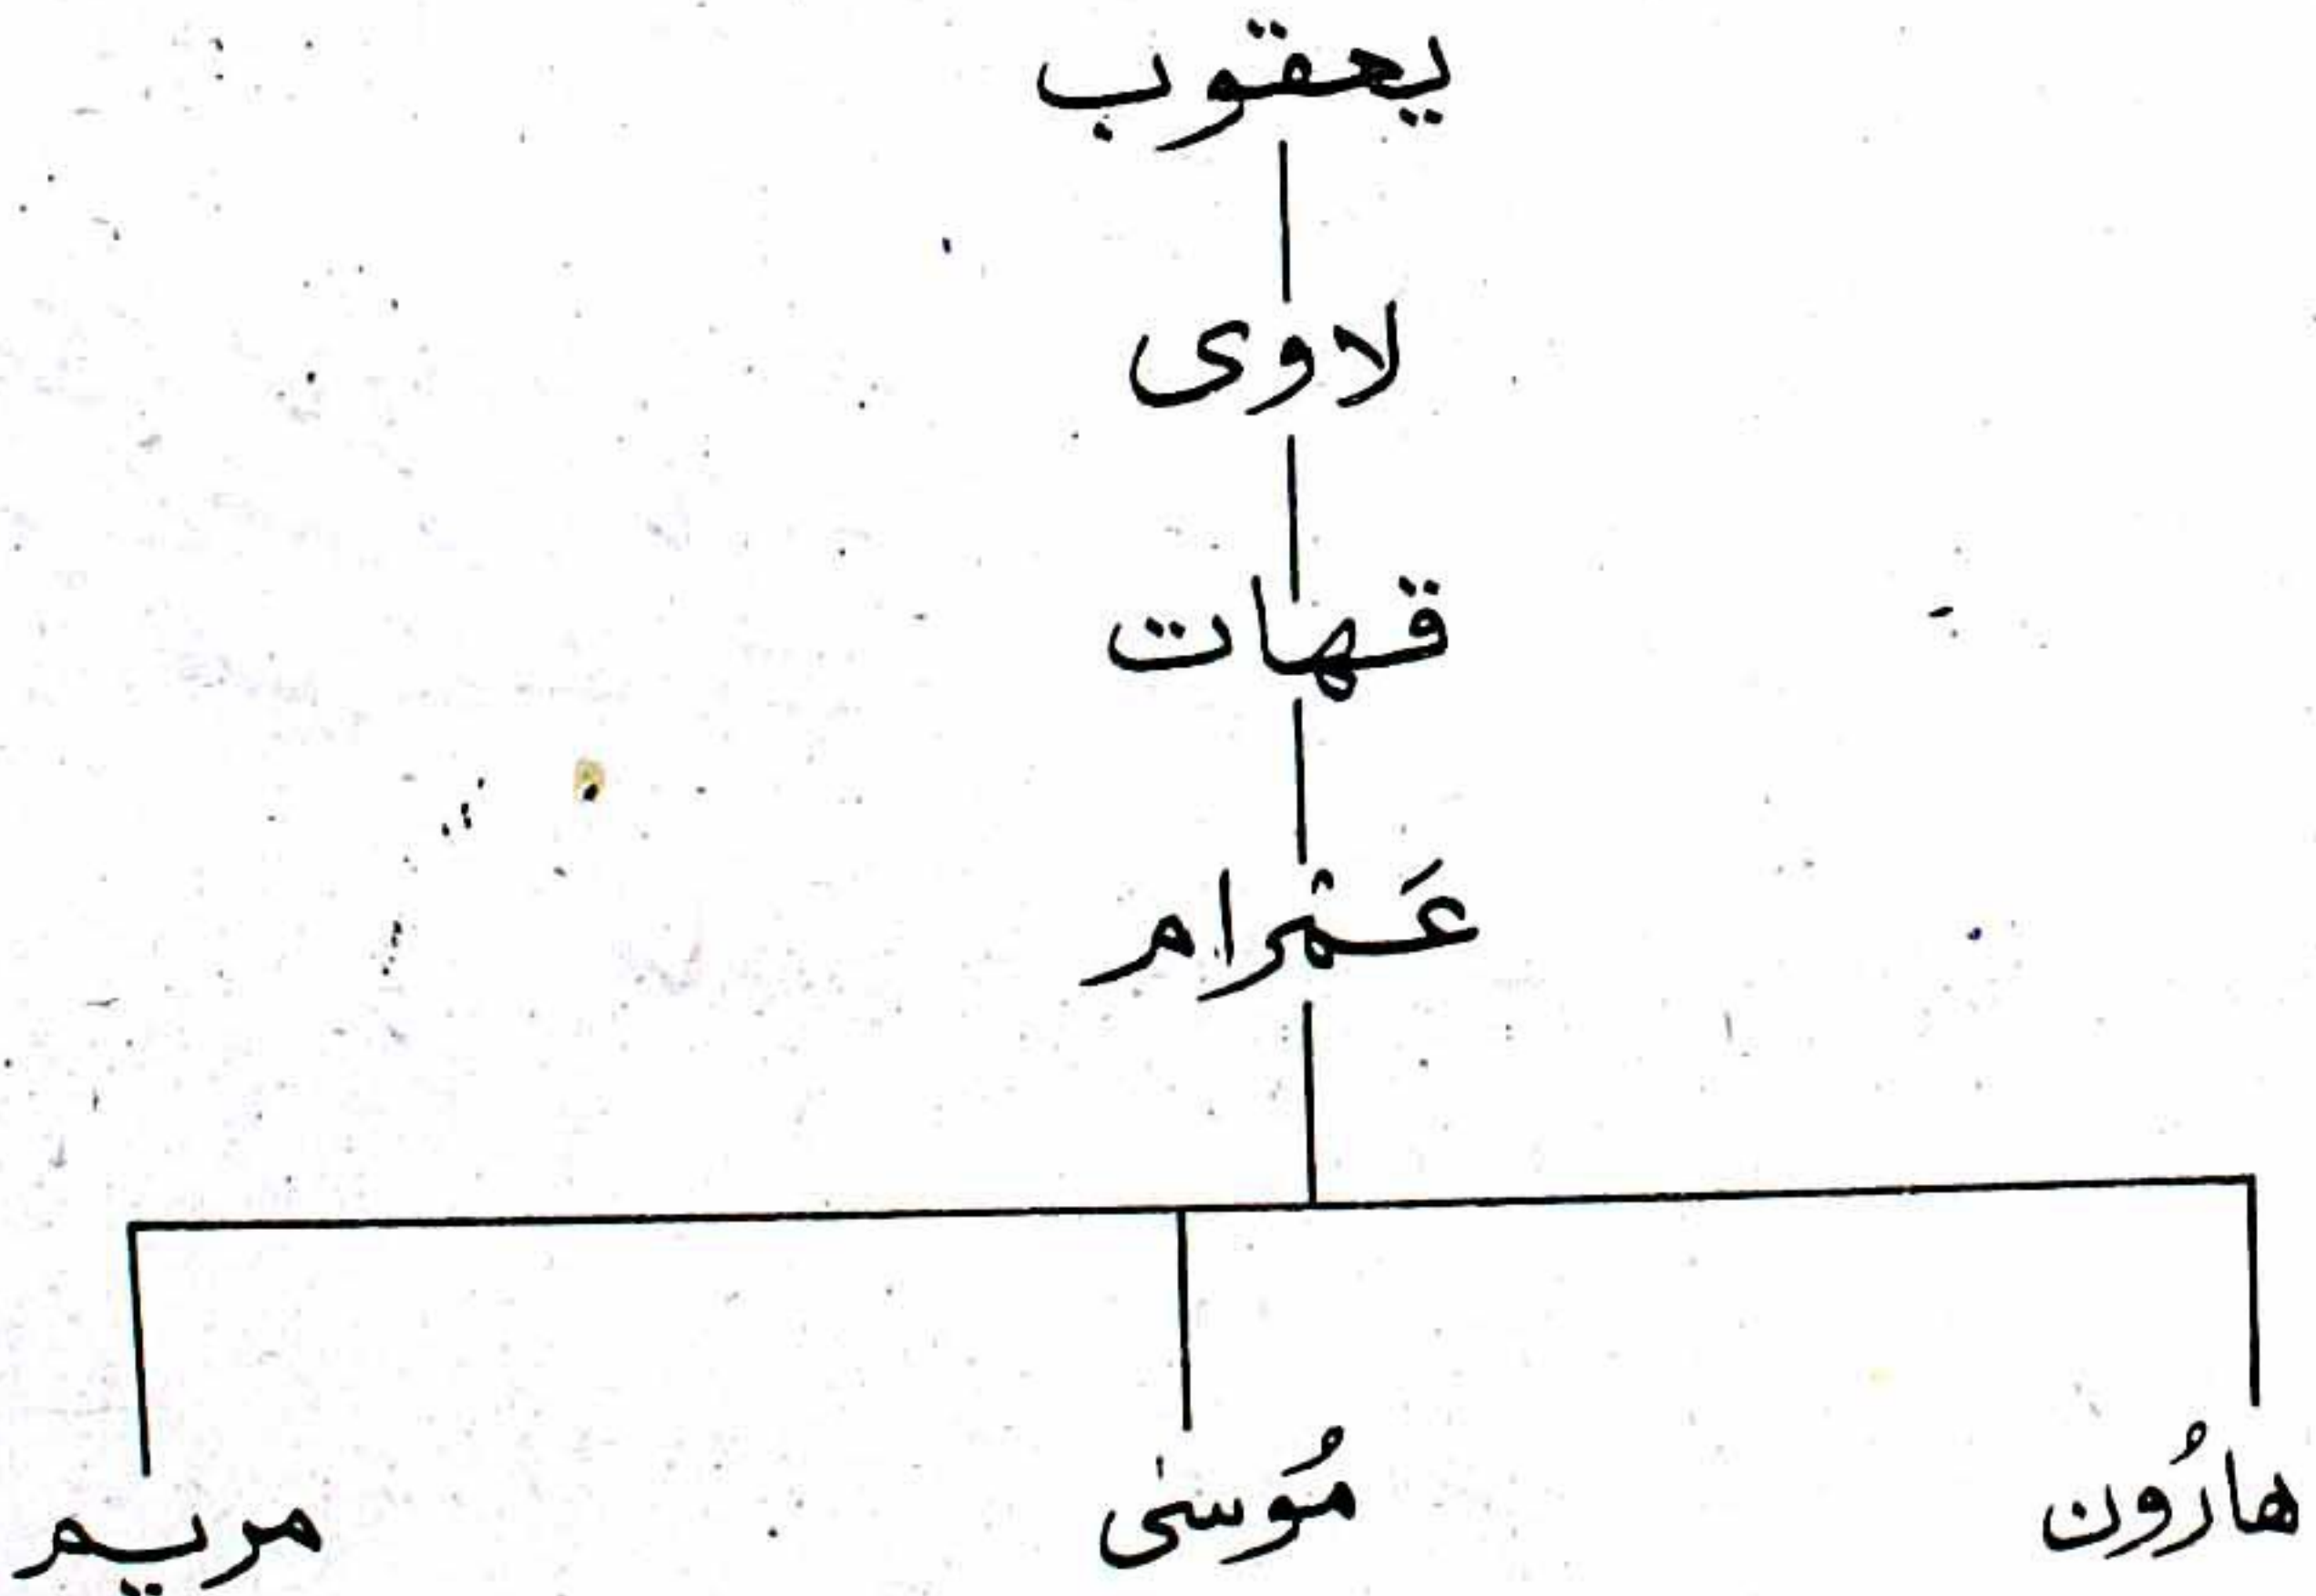 يعقوب
لاوى
قهات
عَمْرام
هارُون مُوسىٰ مريم